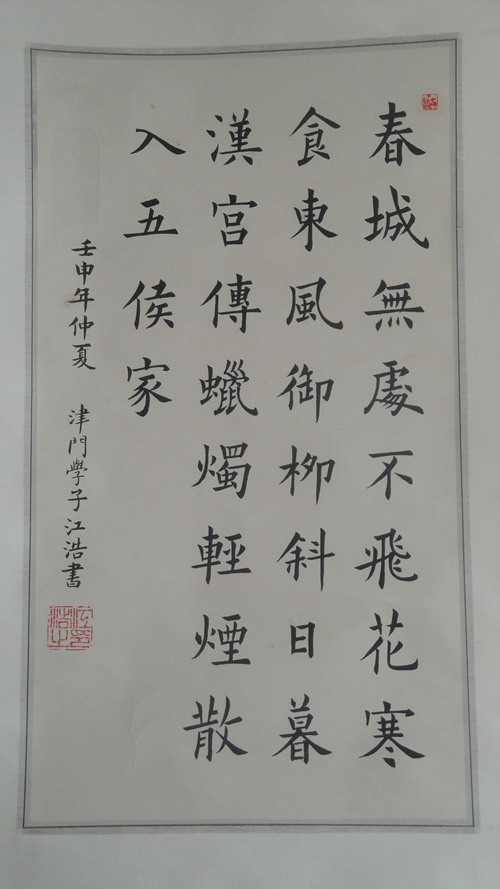 春城無處不飛花寒
食東風御柳斜日暮
漢宮傳蠟燭輕煙散
入五侯家
壬申年仲夏 津門學子江浩書